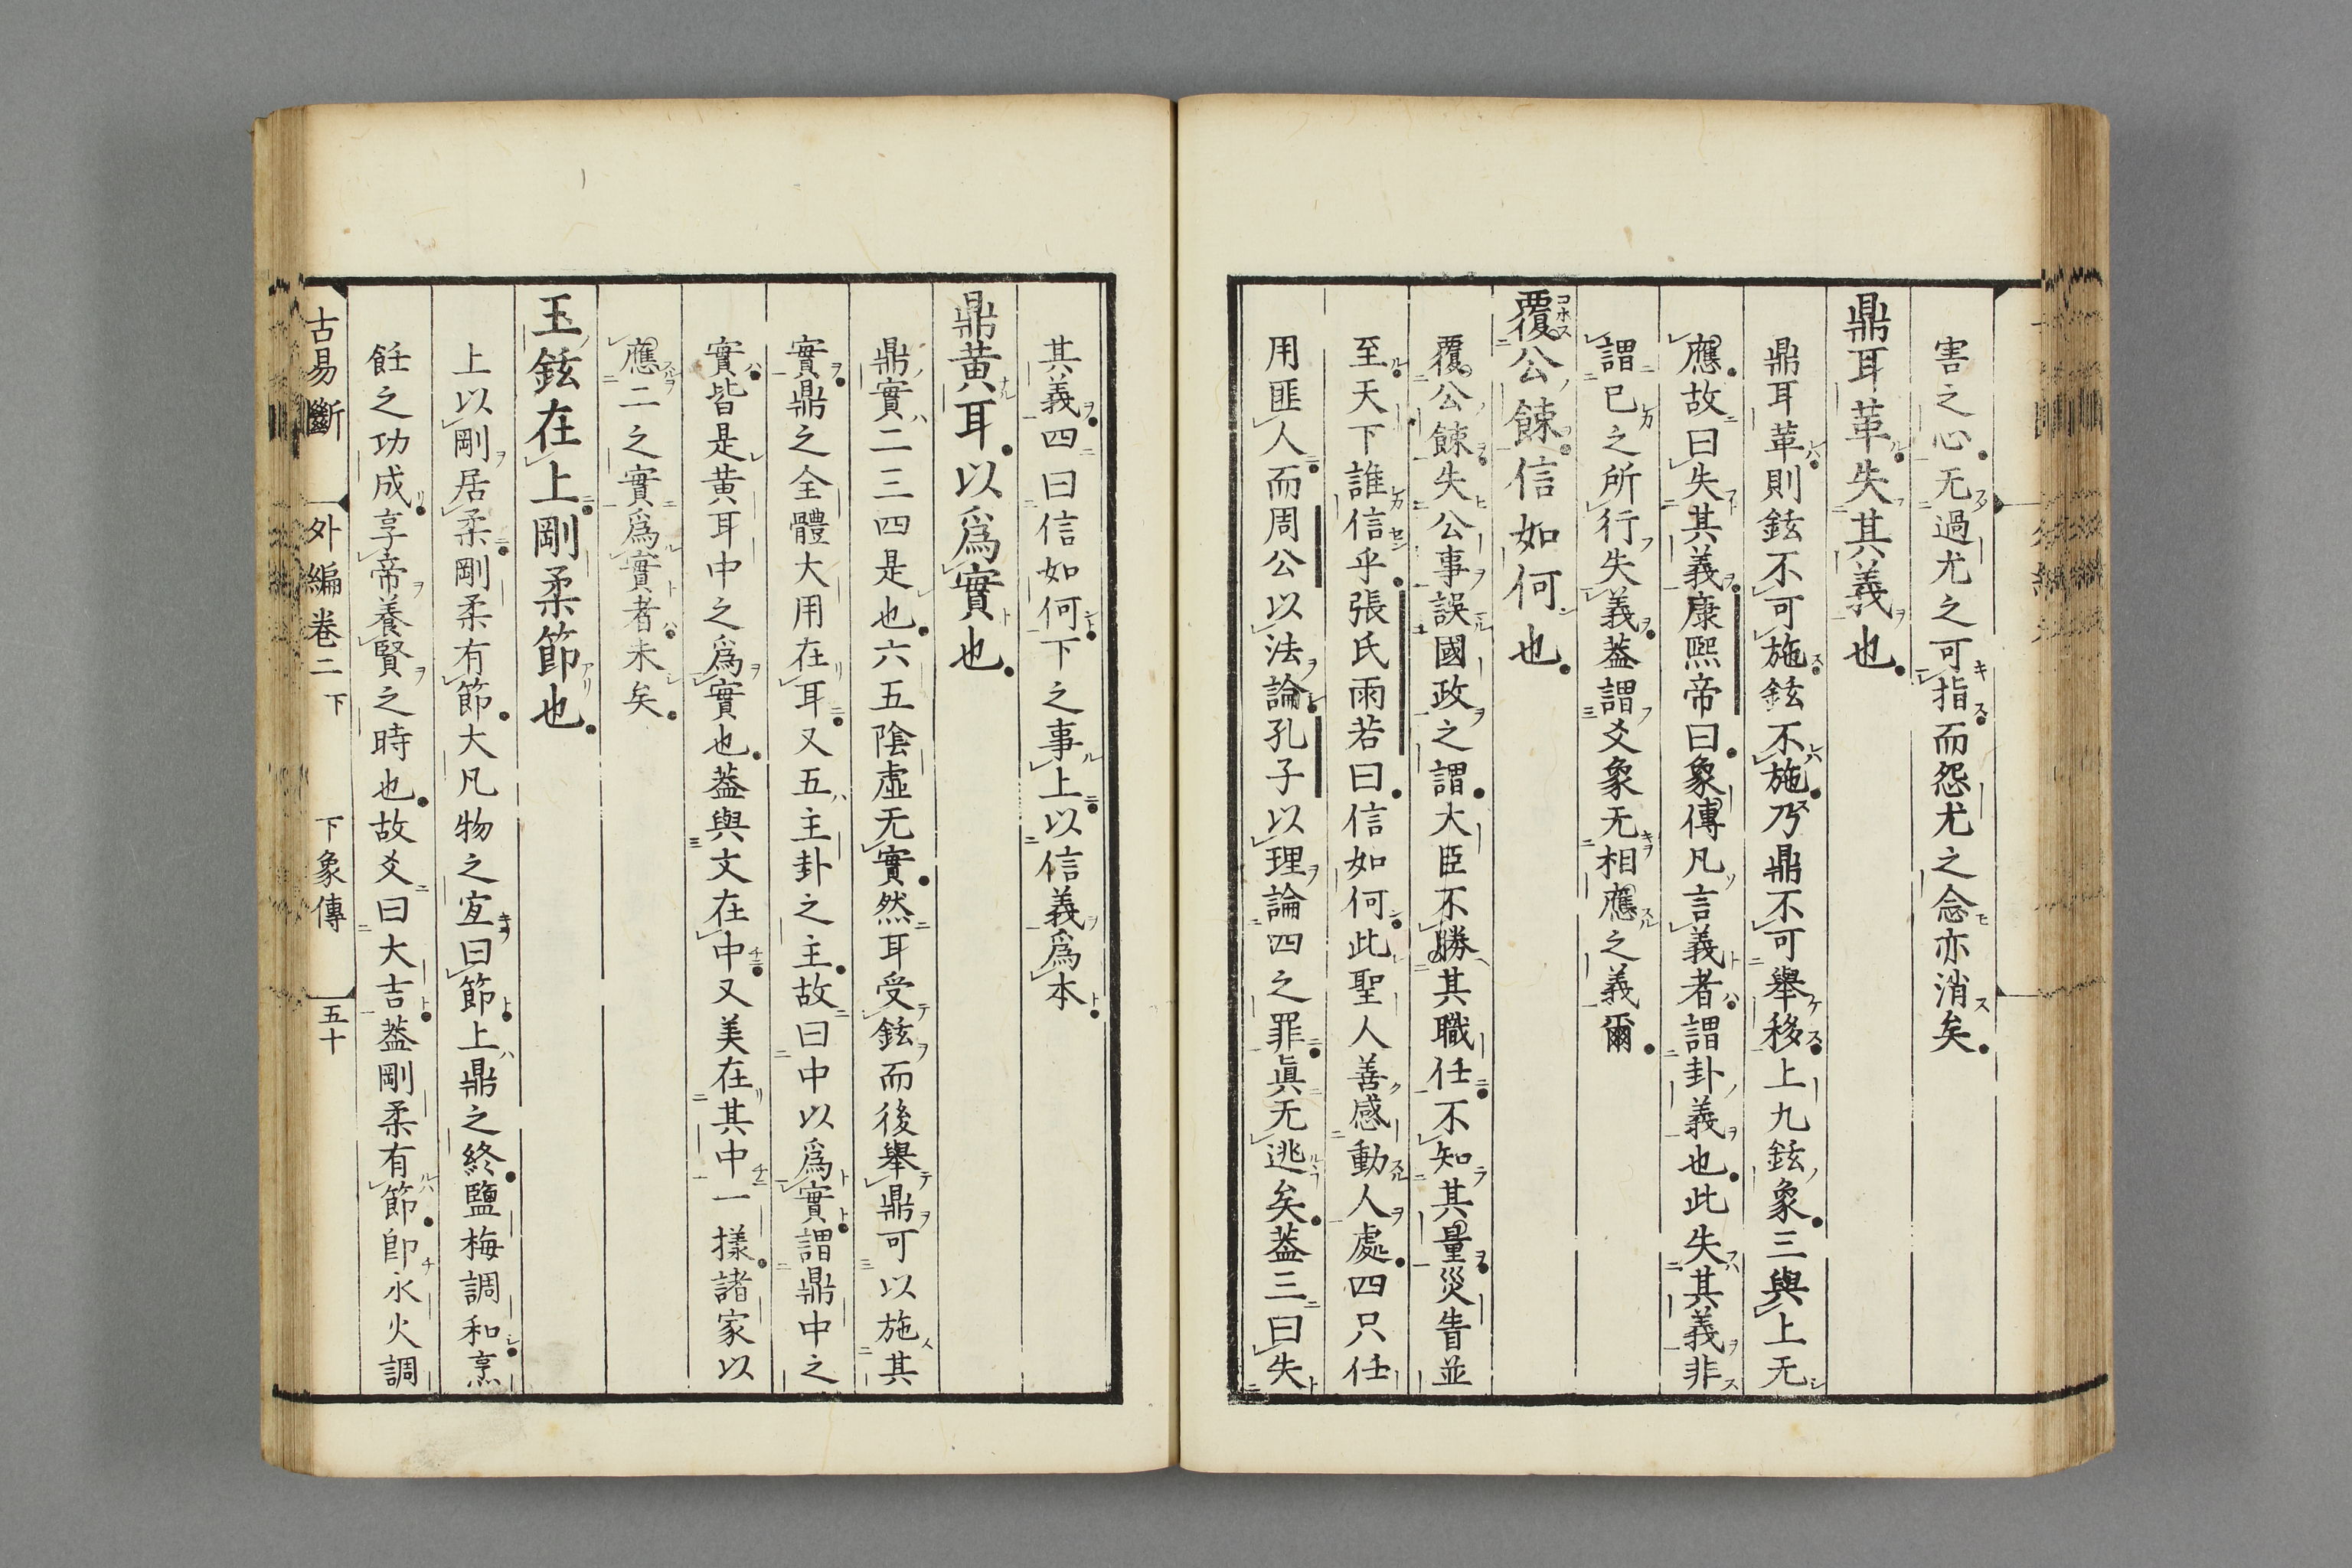 害之心无過尤之可指而怨尤之念亦消矣
鼎耳革失其義也
鼎耳革則鉉不可施鉉不施乃鼎不可舉移上九鉉象三與上无
應故曰失其義康熙帝曰象傳凡言義者謂卦義也此失其義非
謂已之所行失義葢謂爻象无相應之義爾
覆公餗信如何也
覆公餗失公事誤國政之謂大臣不勝其職任不知其量災眚並
至天下誰信乎張氏雨若曰信如何此聖人善感動人處四只任
用匪人而周公以法論孔子以理論四之罪眞无逃矣葢三曰失
其義四曰信如何下之事上以信義爲本
鼎黄耳以爲實也
鼎實二三四是也六五陰虛无實然耳受鉉而後舉鼎可以施其
實鼎之全體大用在耳又五主卦之主故曰中以爲實謂鼎中之
實皆是黄耳中之爲實也葢與文在中又美在其中一樣諸家以
應二之實爲實者未矣
玉鉉在上剛柔節也
上以剛居柔剛柔有節大凡物之宜曰節上鼎之終鹽梅調和烹
飪之功成享帝養賢之時也故爻曰大吉葢剛柔有節卽水火調
古易斷 外編卷二下 下象傳 五十